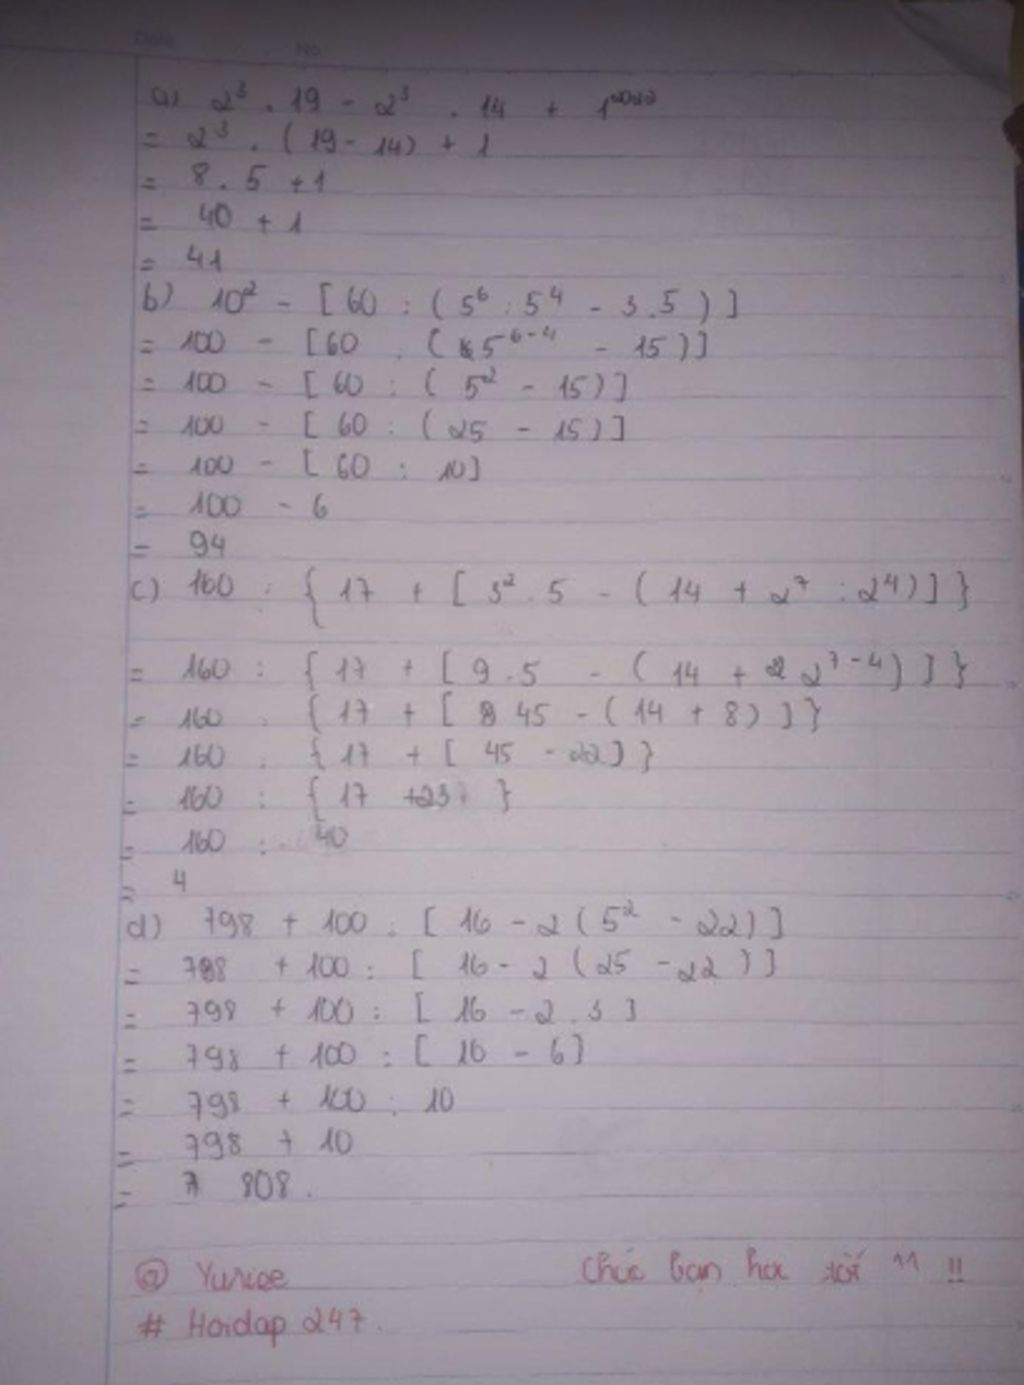 Date No
a) 2³ . 19 - 2³ . 14 + 1²⁰²²
= 2³ . ( 19 - 14) + 1
= 8 . 5 + 1
= 40 + 1
= 41
b) 10² - [ 60 : ( 5⁶ : 5⁴ - 3.5 ) ]
= 100 - [60 : ( 5⁶⁻⁴ - 15 )]
= 100 - [ 60 : ( 5² - 15 )]
= 100 - [ 60 : ( 25 - 15 )]
= 100 - [ 60 : 10]
= 100 - 6
= 94
c) 160 : { 17 + [ 3² . 5 - ( 14 + 2⁷ : 2⁴)] }
= 160 : { 17 + [ 9 . 5 - ( 14 + 2⁷⁻⁴) ] }
= 160 : { 17 + [ 45 - ( 14 + 8) ] }
= 160 : { 17 + [ 45 - 22] }
= 160 : { 17 + 23 }
= 160 : 40
= 4
d) 798 + 100 : [ 16 - 2 ( 5² - 22) ]
= 798 + 100 : [ 16 - 2 (25 - 22 ) ]
= 798 + 100 : [ 16 - 2 . 3 ]
= 798 + 100 : [ 16 - 6]
= 798 + 100 : 10
= 798 + 10
= 808 .
@ Yurice Chúc bạn học tốt ^^ !!
# Hoidap 247 .